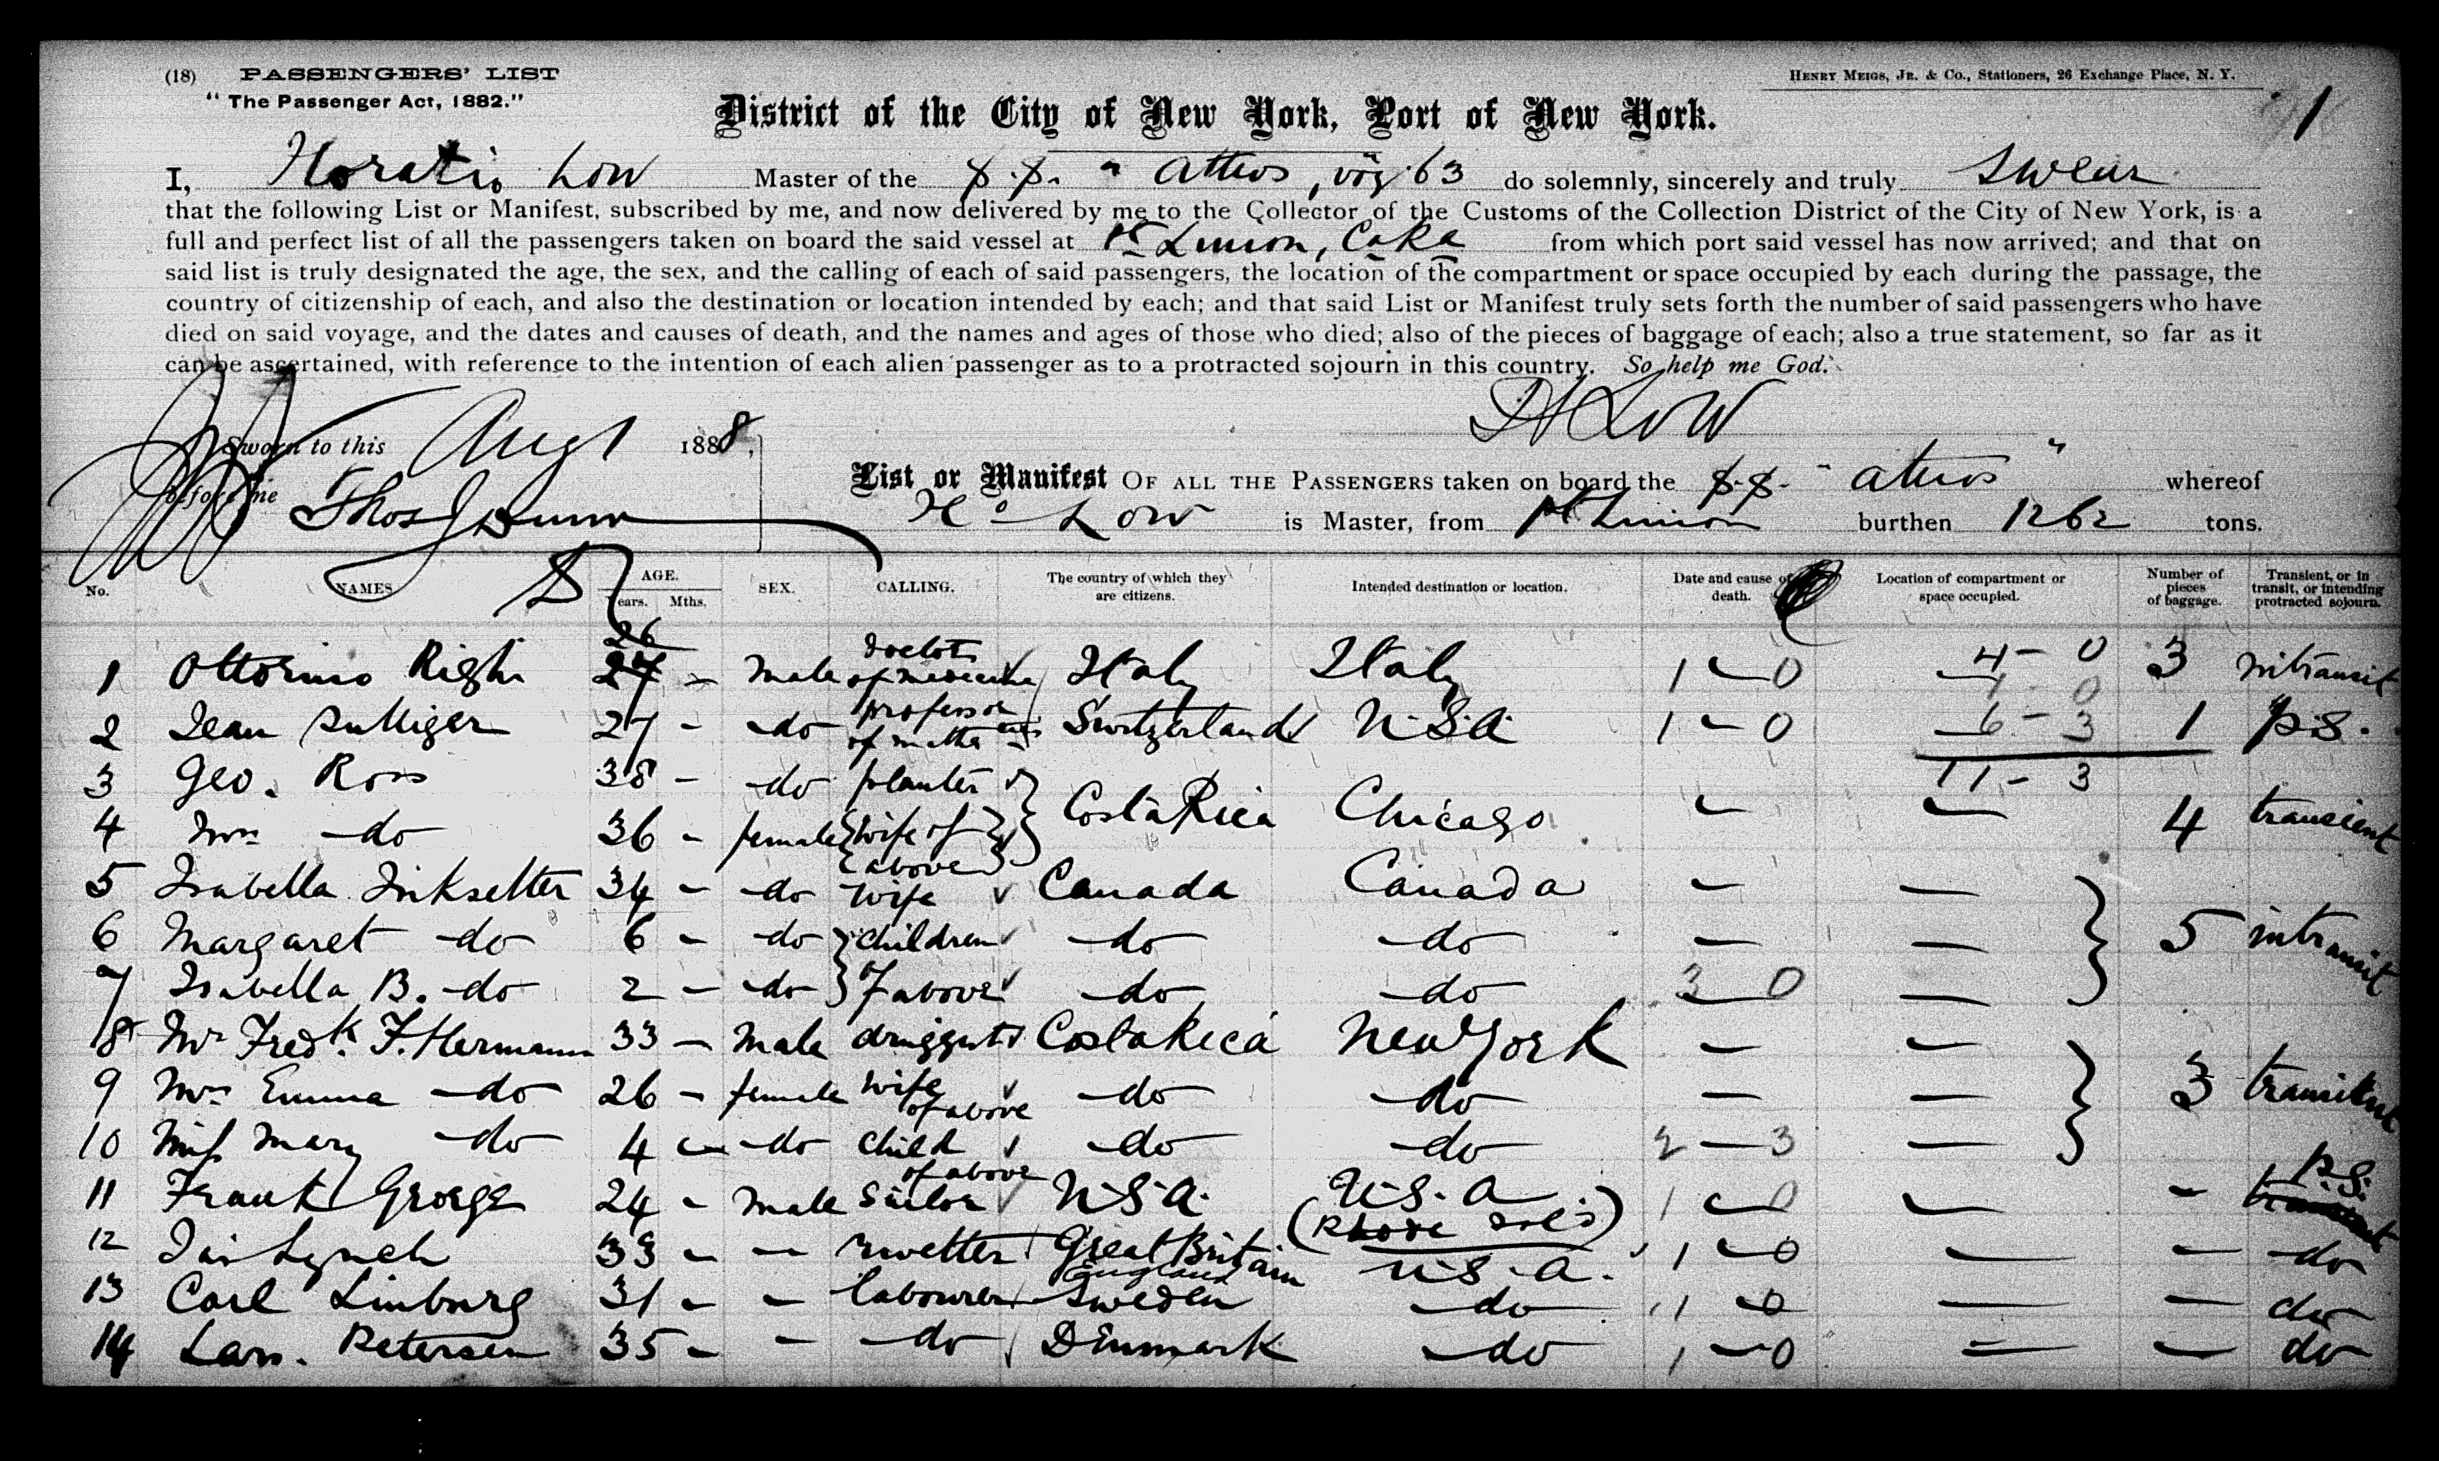 (18) PASSENGERS' LIST
"The Passenger Act, 1882."
HENRY MEIGS, JR. & Co., Stationers, 26 Exchange Place, N. Y.
1
District of the City of New York, Port of New York.
I, Horatio Low Master of the S.S. "Athos, voy 63 do solemnly, sincerely and truly swear
that the following List or Manifest, subscribed by me, and now delivered by me to the Collector of the Customs of the Collection District of the City of New York, is a
full and perfect list of all the passengers taken on board the said vessel at Pt Limon, CaRa from which port said vessel has now arrived; and that on
said list is truly designated the age, the sex, and the calling of each of said passengers, the location of the compartment or space occupied by each during the passage, the
country of citizenship of each, and also the destination or location intended by each; and that said List or Manifest truly sets forth the number of said passengers who have
died on said voyage, and the dates and causes of death, and the names and ages of those who died; also of the pieces of baggage of each; also a true statement, so far as it
can be ascertained, with reference to the intention of each alien passenger as to a protracted sojourn in this country. So help me God.
H Low
Sworn to this Aug 1 1888,
before me Thos J Dunn
List or Manifest OF ALL THE PASSENGERS taken on board the S.S. "Athos" whereof
H. Low is Master, from Pt Limon burthen 1262 tons.
No. NAMES. AGE. Years. Mths. SEX. CALLING. The country of which they are citizens. Intended destination or location. Date and cause of death. Location of compartment or space occupied. Number of pieces of baggage. Transient, or in transit, or intending protracted sojourn.
1 Ottorino Righi 26 27 - male doctor of medicine Italy Italy 1 - 0 4 - 0 3 intransit
2 Jean Sulliger 27 - do professor of mathe Switzerland U.S.A. 1 - 0 6 - 3 1 p.s.
11 - 3
3 Geo. Ross 38 - do planter
4 Mrs do 36 - female wife of above Costa Rica Chicago - - 4 transient
5 Isabella Inksetter 34 - do wife Canada Canada - -
6 Margaret do 6 - do children do do - - 5 intransit
7 Isabella B. do 2 - do of above do do 3 - 0 -
8 Mr Fredk. F. Hermann 33 - male druggist Costa Rica New York - -
9 Mrs Emma do 26 - female wife of above do do - - 3 transient
10 Miss Mary do 4 - do child of above do do 2 - 3 -
11 Frank George 24 - male sailor U.S.A. U.S.A. 1 - 0 - - p.s. transient
12 Jas Lynch 33 - - rivetter Great Britain England U.S.A. 1 - 0 - - do
13 Carl Limburg 31 - - labourer Sweden do 1 - 0 - - do
14 Lars. Petersen 35 - - do Dinmark do 1 - 0 - - do